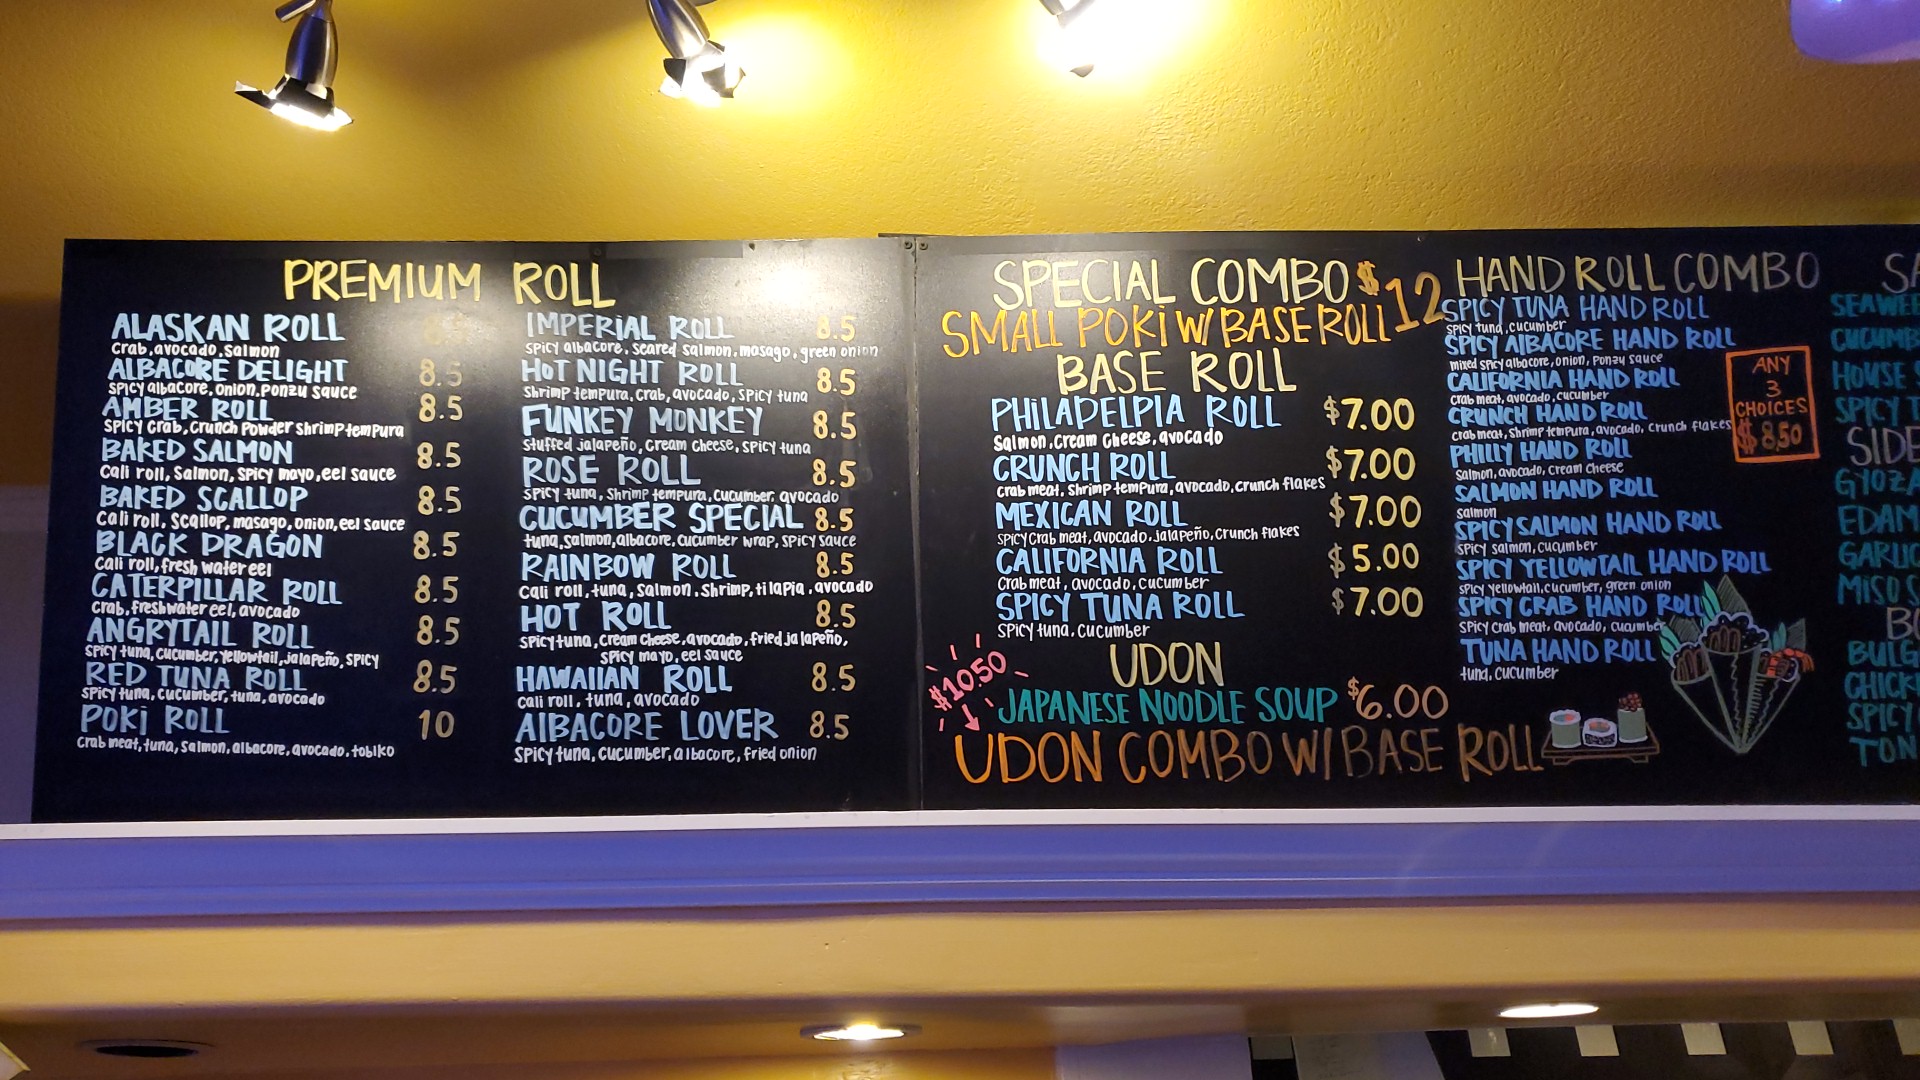 PREMIUM ROLL
ALASKAN ROLL 8.5
crab, avocado, salmon
ALBACORE DELIGHT 8.5
spicy albacore, onion, ponzu sauce
AMBER ROLL 8.5
spicy crab, crunch powder shrimp tempura
BAKED SALMON 8.5
cali roll, salmon, spicy mayo, eel sauce
BAKED SCALLOP 8.5
cali roll, scallop, masago, onion, eel sauce
BLACK DRAGON 8.5
cali roll, fresh water eel
CATERPILLAR ROLL 8.5
crab, freshwater eel, avocado
ANGRYTAIL ROLL 8.5
spicy tuna, cucumber, yellowtail, jalapeño, spicy
RED TUNA ROLL 8.5
spicy tuna, cucumber, tuna, avocado
POKI ROLL 10
crab meat, tuna, salmon, albacore, avocado, tobiko
IMPERIAL ROLL 8.5
spicy albacore, seared salmon, masago, green onion
HOT NIGHT ROLL 8.5
shrimp tempura, crab, avocado, spicy tuna
FUNKEY MONKEY 8.5
stuffed jalapeño, cream cheese, spicy tuna
ROSE ROLL 8.5
spicy tuna, shrimp tempura, cucumber, avocado
CUCUMBER SPECIAL 8.5
tuna, salmon, albacore, cucumber wrap, spicy sauce
RAINBOW ROLL 8.5
cali roll, tuna, salmon, shrimp, tilapia, avocado
HOT ROLL 8.5
spicy tuna, cream cheese, avocado, fried jalapeño,
spicy mayo, eel sauce
HAWAIIAN ROLL 8.5
cali roll, tuna, avocado
AlBACORE LOVER 8.5
spicy tuna, cucumber, albacore, fried onion
SPECIAL COMBO $12
SMALL POKI W/ BASE ROLL
BASE ROLL
PHILADELPIA ROLL $7.00
salmon, cream cheese, avocado
CRUNCH ROLL $7.00
crab meat, shrimp tempura, avocado, crunch flakes
MEXICAN ROLL $7.00
spicy crab meat, avocado, jalapeño, crunch flakes
CALIFORNIA ROLL $5.00
crab meat, avocado, cucumber
SPICY TUNA ROLL $7.00
spicy tuna, cucumber
UDON
JAPANESE NOODLE SOUP $6.00
$10.50
UDON COMBO W/ BASE ROLL
HAND ROLL COMBO
SPICY TUNA HAND ROLL
spicy tuna, cucumber
SPICY AlBACORE HAND ROLL
mixed spicy albacore, onion, ponzu sauce
CALIFORNIA HAND ROLL
crab meat, avocado, cucumber
CRUNCH HAND ROLL
crab meat, shrimp tempura, avocado, crunch flakes
PHILLY HAND ROLL
salmon, avocado, cream cheese
SALMON HAND ROLL
salmon
SPICY SALMON HAND ROLL
spicy salmon, cucumber
SPICY YELLOWTAIL HAND ROLL
spicy yellowtail, cucumber, green onion
SPICY CRAB HAND ROLL
spicy crab meat, avocado, cucumber
TUNA HAND ROLL
tuna, cucumber
ANY
3
CHOICES
$8.50
SA
SEAWEE
CUCUMB
HOUSE S
SPICY T
SIDE
GYOZA
EDAM
GARLIC
MISO S
BO
BULG
CHICK
SPICY
TON